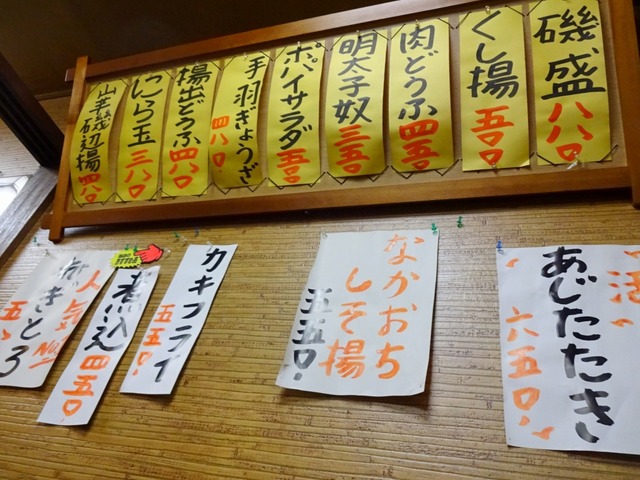 磯盛
八八〇
くし揚
五〇〇
肉どうふ
四五〇
明太子奴
三五〇
ポパイサラダ
五〇〇
手羽ぎょうざ
四八〇
揚出どうふ
四八〇
にら玉
三八〇
山芋磯辺揚
四八〇
活
あじたたき
六五〇
なかおち
しそ揚
五五〇
カキフライ
五五〇
煮込
四五〇
人気No.1